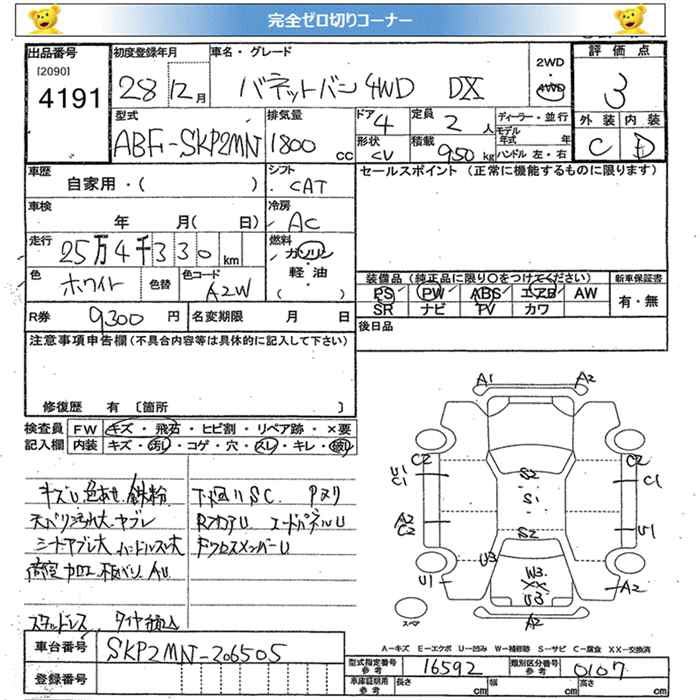 完全ゼロ切りコーナー
出品番号 初度登録年月 車名・グレード 2WD 評価点
[2090]
4191 28 12月 バネットバン 4WD DX 4WD 3
型式 排気量 ドア 定員 ディーラー・並行 外装 内装
ABF-SKP2MN 1800cc 4 2人 モデル年式 年 C D
形状 積載 ハンドル 左・右
CV 950kg
車歴 シフト セールスポイント(正常に機能するものに限ります)
自家用・( ) CAT
車検 冷房
年 月( 日) AC
走行 燃料
25万4千330km ガソリン・軽油( )
色 色替 色コード 装備品(純正品に限り○をつけてください) 新車保証書
ホワイト A2W PS PW ABS エアB AW 有・無
SR ナビ TV カワ
R券 9300円 名変期限 月 日 後日品
注意事項申告欄(不具合内容等は具体的に記入して下さい)
修復歴 有 [箇所 ]
検査員 FW キズ・飛石・ヒビ割・リペア跡・×要
記入欄 内装 キズ・汚れ・コゲ・穴・スレ・キレ・破れ
キズU 色あせ 鉄粉 下廻りSC Pヌリ
天バリ汚れ大 ヤブレ RフロアU エードパネルU
シートヤブレ大 ハンドルスレ大 FクロスメンバーU
荷室 加工 板バリ AU
スタッドレス タイヤ積込
A1 A2
C2 C2
U1 S2
C1 C1
S1
A2
C2 S2 U1
U3
U1 W3 A2
XX
U3
A2
スペア
A−キズ E−エクボ U−凹み W−補修跡 S−サビ C−腐食 XX−交換済
車台番号 SKP2MN-206505
型式指定番号 参考 16592 類別区分番号 参考 0107
登録番号 車庫証明用 参考 長さ cm 幅 cm 高さ cm